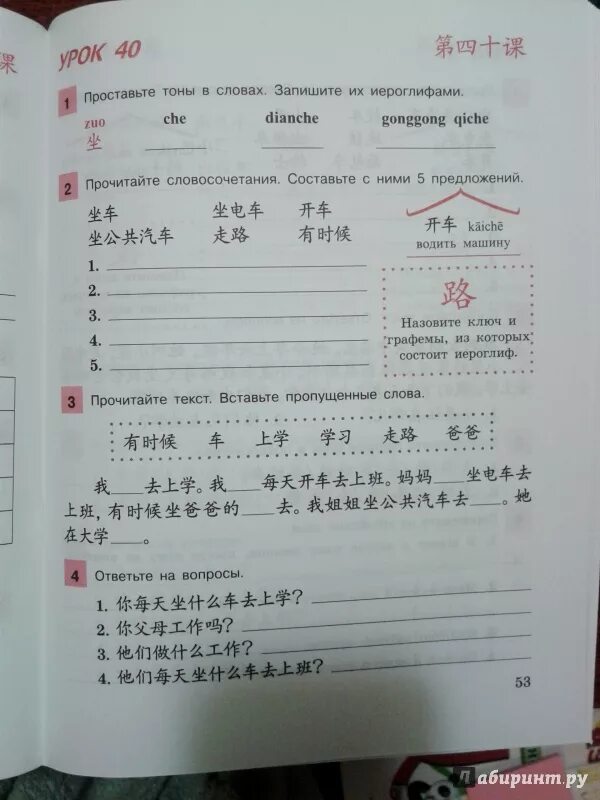 课
УРОК 40
第四十课
1 Проставьте тоны в словах. Запишите их иероглифами.
zuo che dianche gonggong qiche
坐
2 Прочитайте словосочетания. Составьте с ними 5 предложений.
坐车 坐电车 开车
坐公共汽车 走路 有时候
开车 kāichē
водить машину
1.
2.
3.
4.
5.
路
Назовите ключ и
графемы, из которых
состоит иероглиф.
3 Прочитайте текст. Вставьте пропущенные слова.
有时候 车 上学 学习 走路 爸爸
我____去上学。我____每天开车去上班。妈妈____坐电车去
上班，有时候坐爸爸的____去。我姐姐坐公共汽车去____。她
在大学____。
4 Ответьте на вопросы.
1. 你每天坐什么车去上学？
2. 你父母工作吗？
3. 他们做什么工作？
4. 他们每天坐什么车去上班？
53
Лабиринт.ру